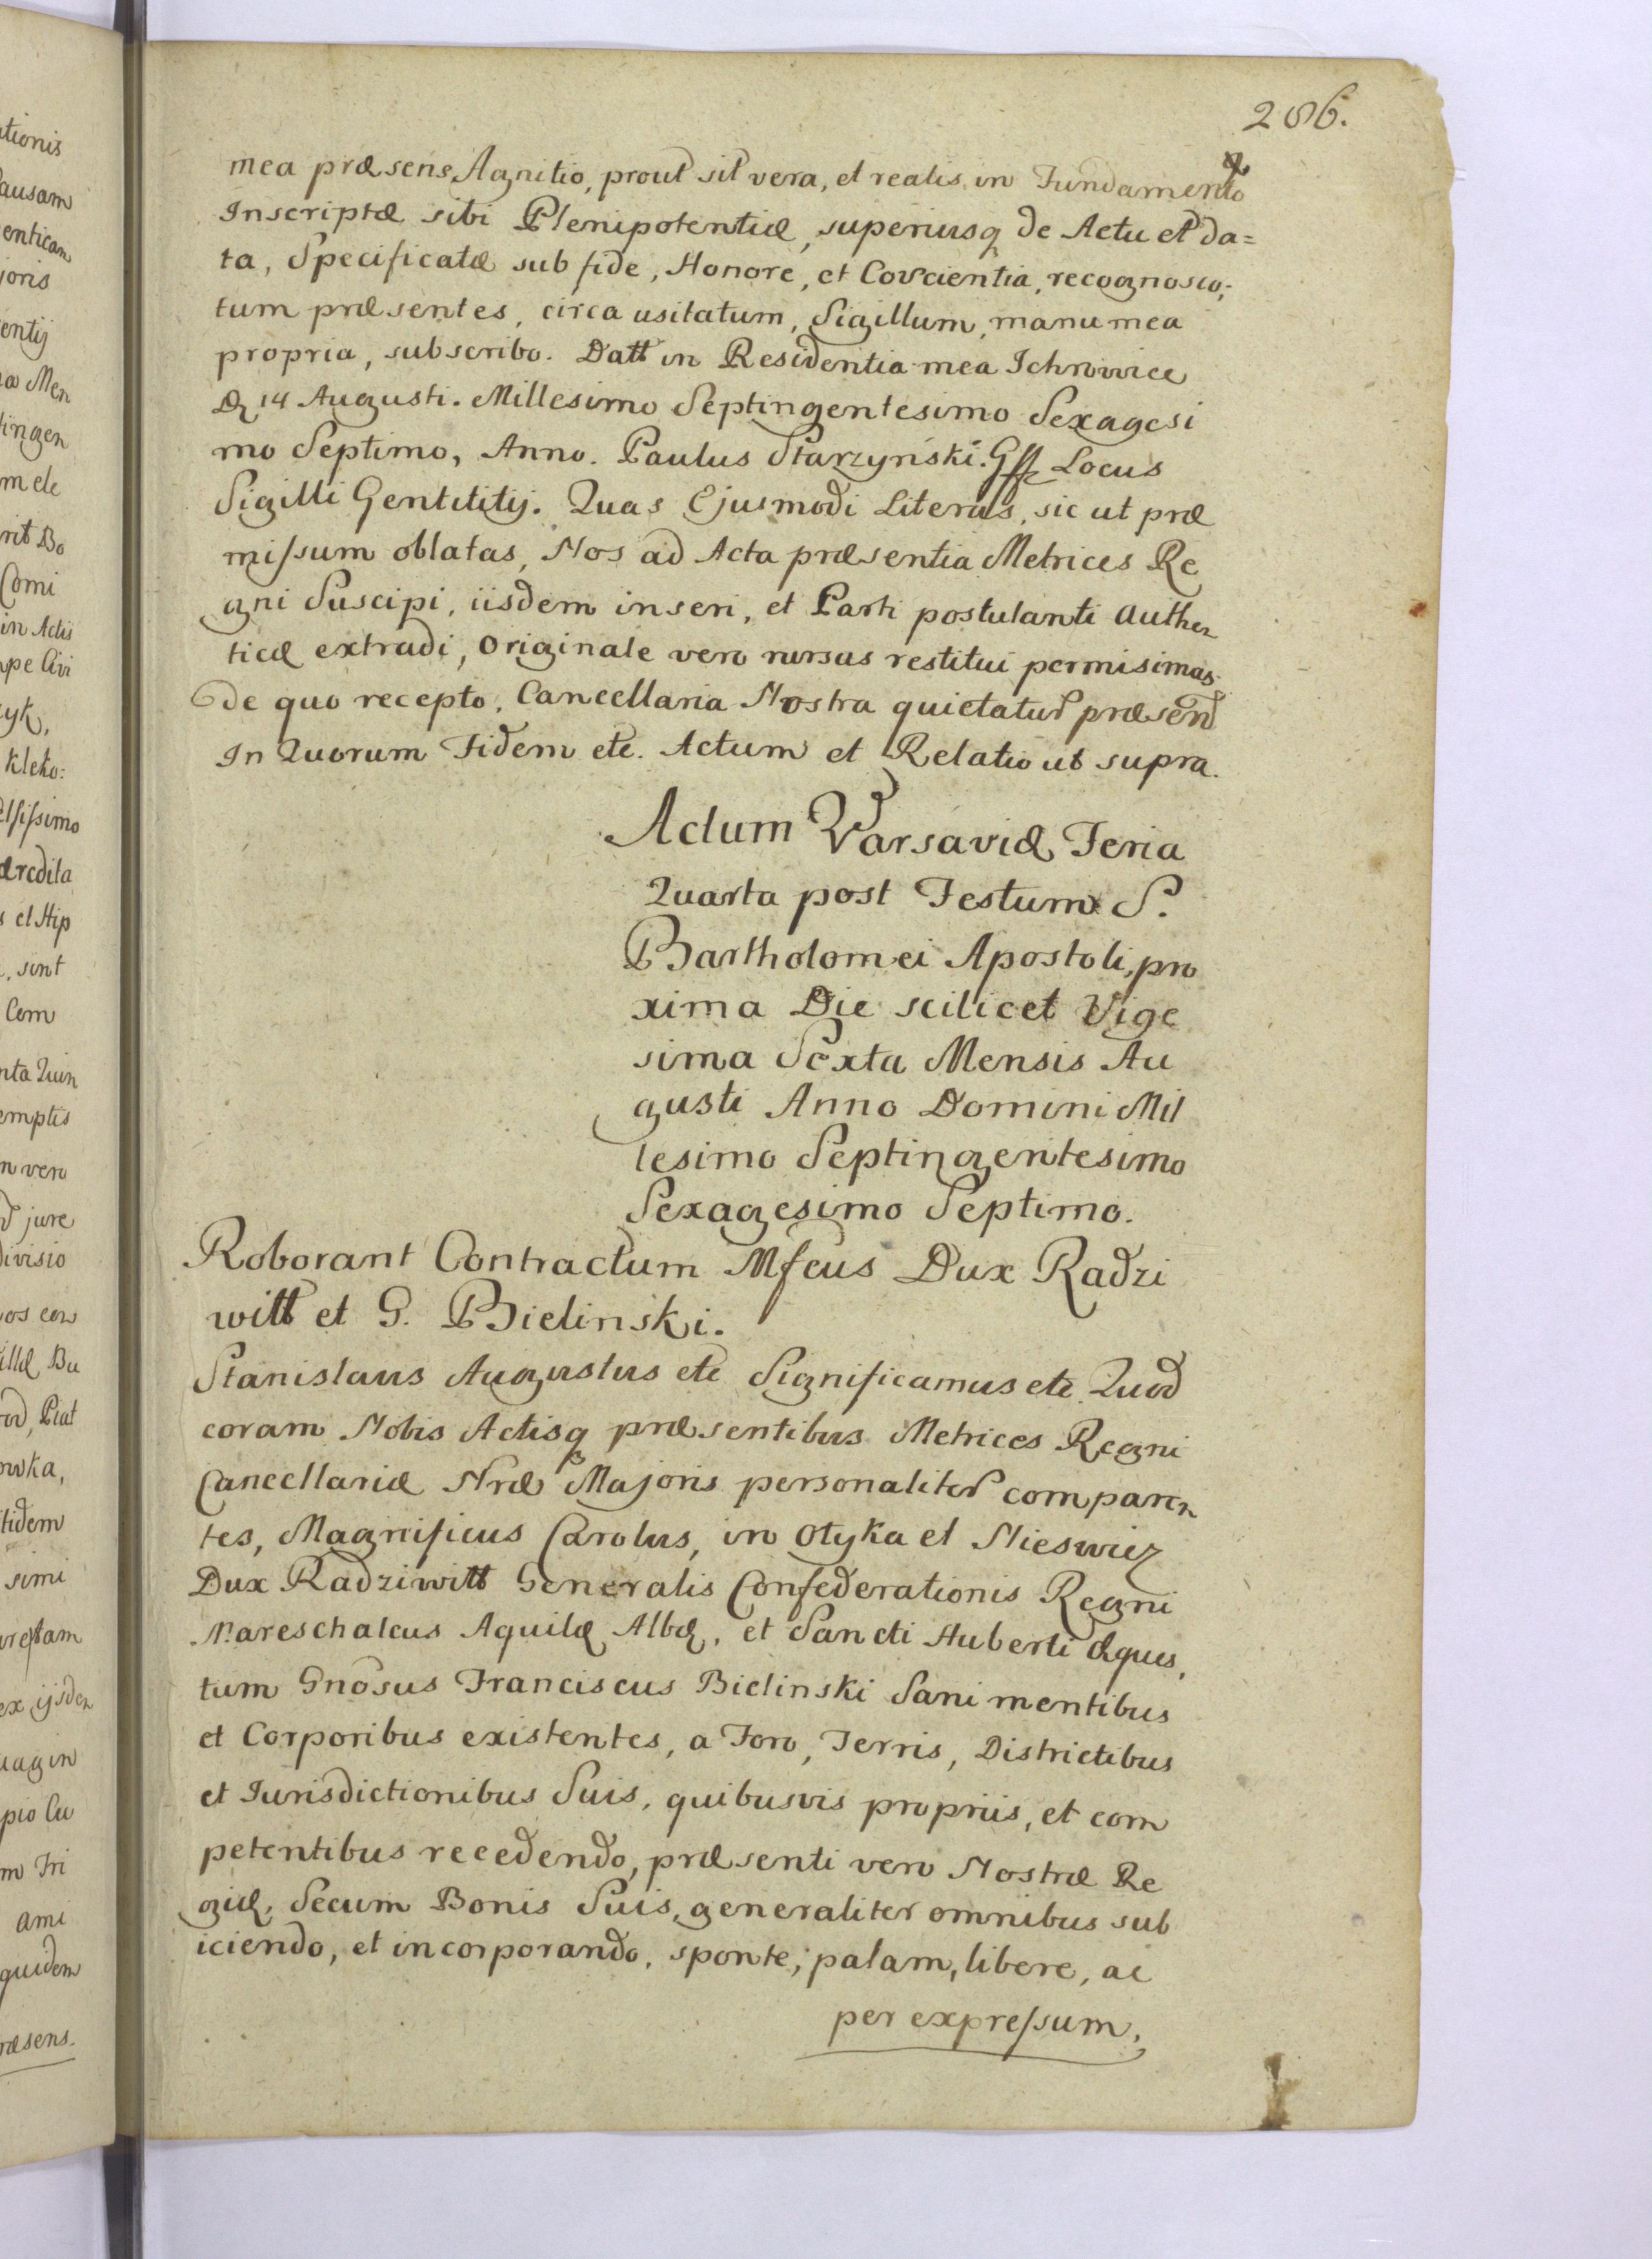 206.
mea præsens Agnitio, prout sit vera, et realis, in Fundamento
Inscriptæ sibi Plenipotentiæ, superiusq de Actu et da=
ta, Specificatæ sub fide, Honore, et Conscientia, recognosco;
tum præsentes, circa usitatum, Sigillum, manu mea
propria, subscribo. Datt in Residentia mea
14 Augusti. Millesimo Septingentesimo Sexagesi
mo Septimo, Anno. Paulus Starzyński. Locus
Sigilli Gentilitij. Quas Ejusmodi Literas, sic ut præ
missum oblatas, Nos ad Acta præsentia Metrices Re
gni Suscipi, iisdem inseri, et Parti postulanti authen
ticæ extradi, Originale vero rursus restitui permisimus.
de quo recepto, Cancellaria Nostra quietatur præsen
In Quorum Fidem etc. Actum et Relatio ut supra.
Actum Varsaviæ Feria
Quarta post Festum S.
Bartholomei Apostoli, pro
xima Die scilicet Vige
sima Sexta Mensis Au
gusti Anno Domini Mil
lesimo Septingentesimo
Sexagesimo Septimo.
Roborant Contractum Mfcus Dux Radzi
wiłł et G. Bielinski.
Stanislaus Augustus etc Significamus etc. Quod
coram Nobis Actisq præsentibus Metrices Regni
Cancellariæ Nræ Majoris personaliter comparen
tes, Magnificus Carolus, in Ołyka et Nieswiez
Dux Radziwiłł Generalis Confederationis Regni
Mareschalcus Aquilæ Albæ, et Sancti Huberti Eques,
tum Gnosus Franciscus Bielinski Sani mentibus
et Corporibus existentes, a Foro, Terris, Districtibus
et Jurisdictionibus Suis, quibusvis propriis, et com
petentibus recedendo, præsenti vero Nostræ Re
giæ, Secum Bonis Suis, generaliter omnibus sub
iciendo, et incorporando, sponte, palam, libere, ac
per expressum,